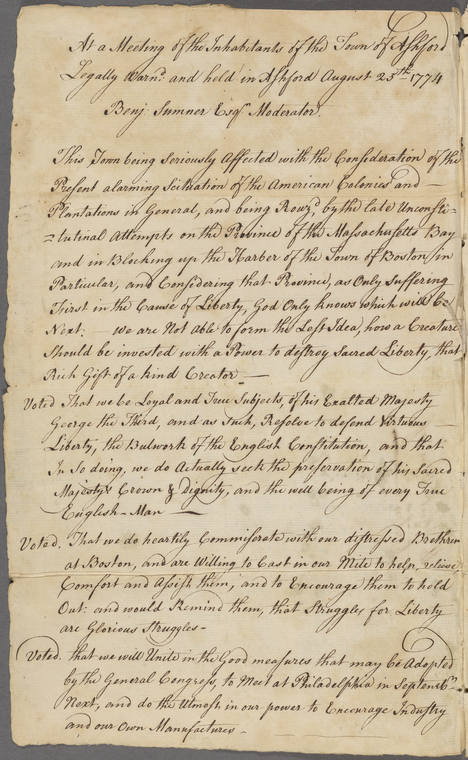 At a Meeting of the Inhabitants of the Town of Ashford
Legally Warnd. and held in Ashford August 25th. 1774
Benj Sumner Esqr Moderator.
This Town being Seriously Affected with the Consideration of the
Present alarming Scituation of the American Colonies and —
Plantations in General, and being Rouzd, by the late Unconsti-
=tutinal Attempts on the Province of the Massachusetts Bay
and in Blocking up the Harber of the Town of Boston, in
Particular, and Considering that Province, as Only Suffering
First in the Cause of Liberty, God Only knows which will be
Next: — we are Not able to form the Lest Idea, how a Creature
Should be invested with a Power to destroy Sacred Liberty, that
Rich Gift of a kind Creator —
Voted That we be Loyal and True Subjects, of his Exalted Majesty
George the Third, and as such, Resolve to defend virtuous —
Liberty, the Bulwork of the English Constitution, and that
In So doing, we do Actually seek the preservation of his Sacred
Majestys Crown & Dignity, and the well being of every True
English-Man —
Voted. That we do heartily Commiserate with our distressed Brethren
at Boston, and are Willing to Cast in our Mite to help, relieve
Comfort and Assist them, and to Encourage them to hold
Out: and would Remind them, that Struggles for Liberty
are Glorious Struggles -
Voted. that we will Unite in the Good measures that may be Adopted
by the General Congress, to Meet at Philadelphia in Septembr.
Next, and do the Utmost in our power to Encourage Industry
and our Own Manufactures -